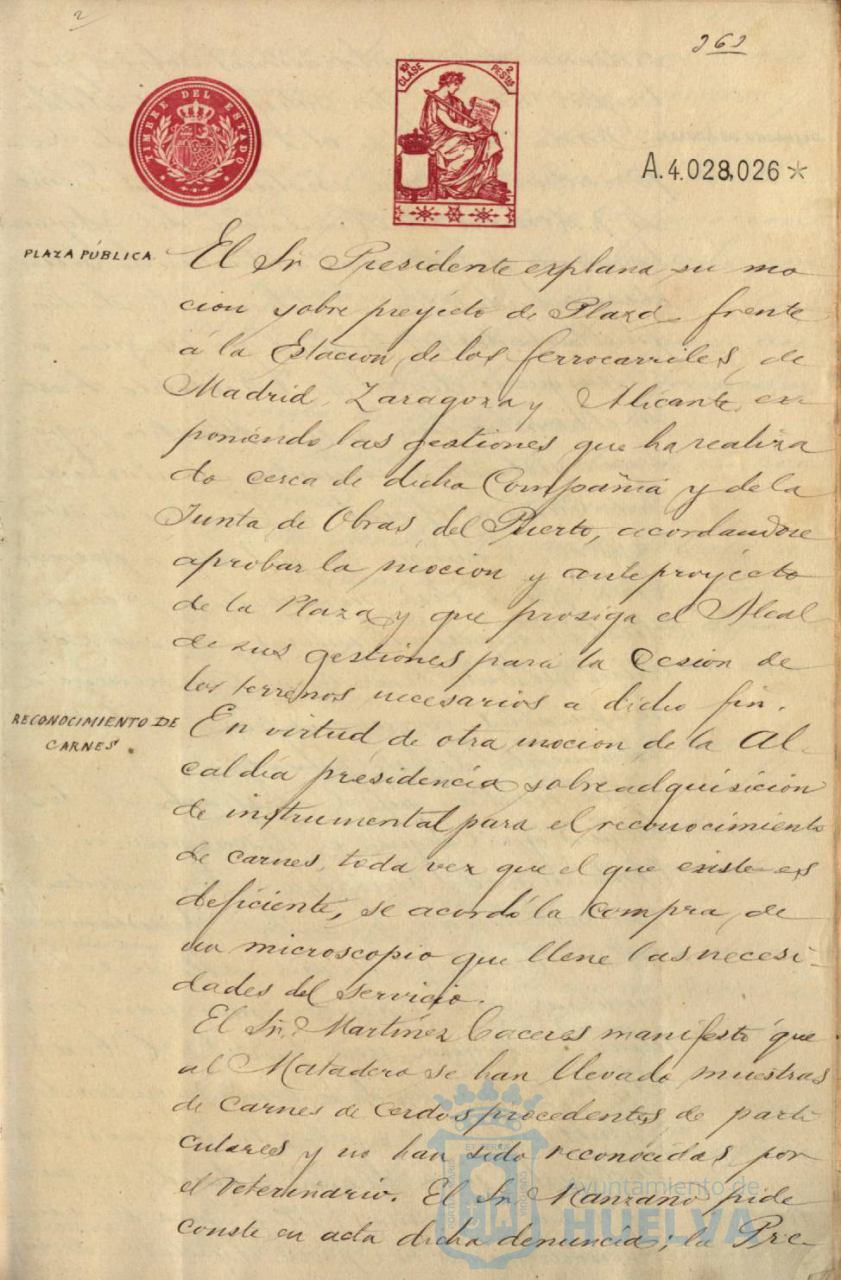 2
262
TIMBRE DEL ESTADO
10ª CLASE
2 PESTAS
A.4.028,026*
PLAZA PÚBLICA
El Sr Presidente explana su mo
cion sobre proyecto de Plaza frente
á la Estacion de los ferrocarriles, de
Madrid, Zaragoza y Alicante, ex-
poniendo las gestiones que ha realiza
do cerca de dicha Compañia y de la
Junta de Obras del Puerto, acordandose
aprobar la mocion y anteproyecto
de la Plaza y que prosiga el Alcal
de sus gestiones para la cesion de
los terrenos necesarios á dicho fin.
RECONOCIMIENTO DE
CARNES.
En virtud de otra mocion de la Al-
caldia presidencia sobre adquisicion
de instrumental para el reconocimiento
de carnes, toda vez que el que existe es
deficiente, se acordó la compra de
un microscopio que llene las necesi-
dades del servicio.
El Sr. Martinez Caceres manifestó que
al Matadero se han llevado muestras
de carnes de cerdos procedentes de parti
culares y no han sido reconocidas por
el Veterinario. El Sr Manzano pide
conste en acta dicha denuncia; la Pre-
Ayuntamiento de
HUELVA